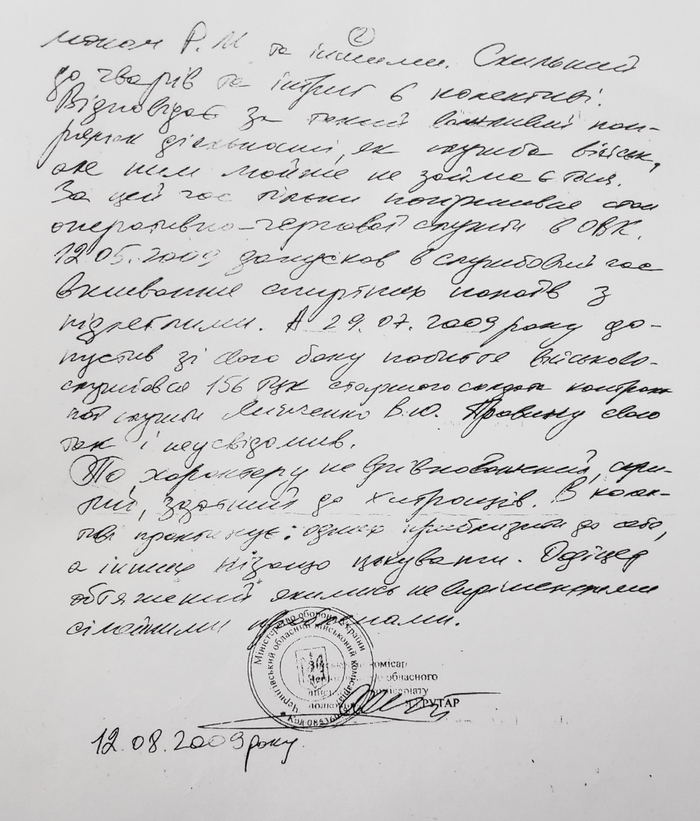 ②
Р. М та іншими. Схильний
до чварів та інтриг в колективі.
Відповідає за такий важливий нап-
рямок діяльності, як служба військ,
але ним майже не займається.
За цей час тільки погіршився стан
оперативно-чергової служби в ОВК.
12.05.2009 допускав в службовий час
вживання спиртних напоїв з
підлеглими. А 29.07.2009 року до-
пустив зі свого боку побиття військово-
службовця 156 старшого солдата контракт
ної служби В.Ю. Провину свою
так і не усвідомив.
По характеру не врівноважений, скри-
тний, здатний до хитрощів. В колек-
тиві практикує: одних приблизити до себе,
а інших нізащо цькувати. Офіцер
обтяжений якимись не
сімейними проблемами.
Міністерство оборони України
Чернігівський обласний військовий комісаріат
комісар
обласного
комісаріату
полковник
РУТАР
12.08.2009 року.